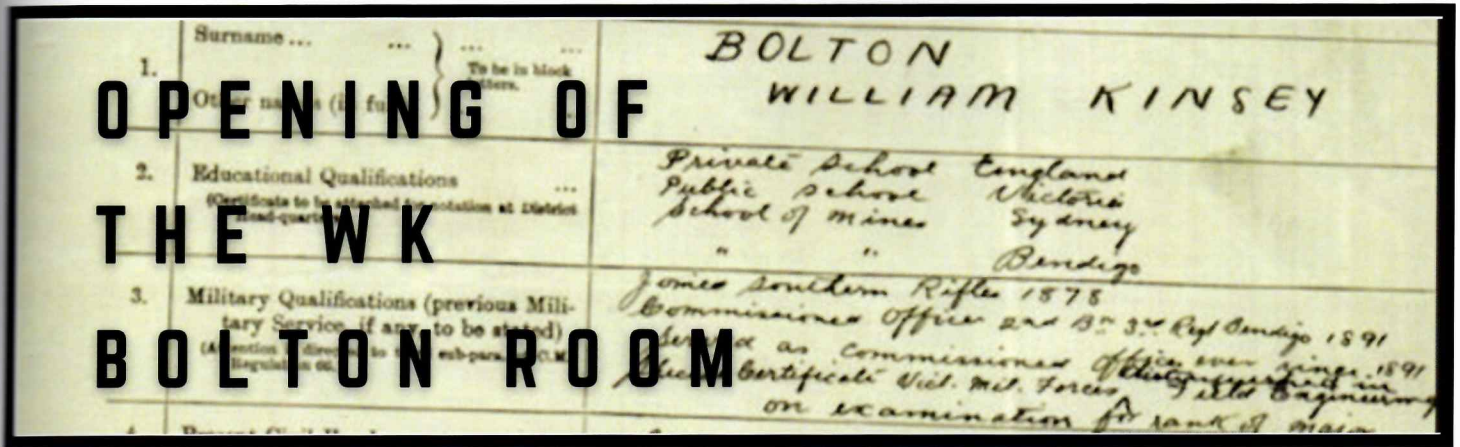 OPENING OF
THE WK
BOLTON ROOM
1.
Surname ... ... ... ...
To be in block
Other names (in full)
BOLTON
WILLIAM KINSEY
2.
Educational Qualifications ...
(Certificate to be attached for notation at District
Head-quarters
Private School England
Public School Victoria
School of Mines Sydney
" " Bendigo
3.
Military Qualifications (previous Mili-
tary Service, if any, to be stated)
Joined Southern Rifles 1878
Commissioned Officer 2nd Bn 3rd Regt Bendigo 1891
Served as commissioned Officer ever since 1891
Certificate Vict. Mil. Forces Field Engineering
on examination for rank of major